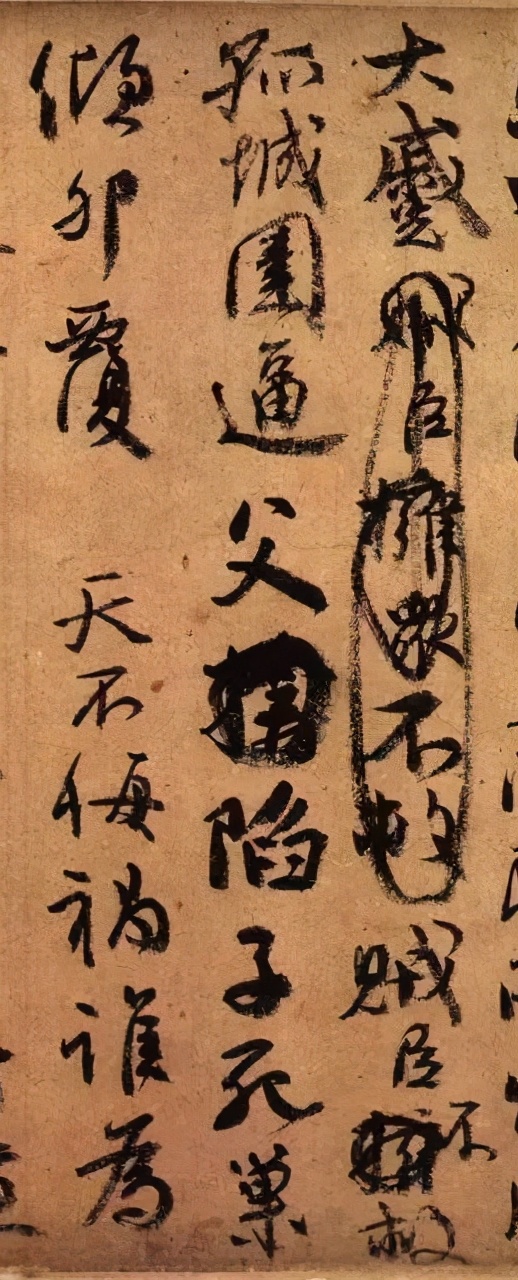 大蹙賊臣擁衆不救賊臣不救
孤城圍逼父陷子死巢
傾卵覆 天不悔禍誰為